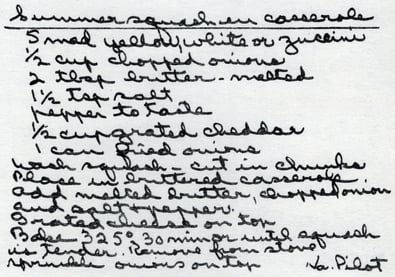 Summer squash en casserole
5 med yellow, white or zuccini
1/2 cup chopped onions
2 tbsp butter - melted
1 1/2 tsp salt
pepper to taste
1/2 cup grated cheddar
1 can fried onions
Wash squash - cut in chunks
Place in buttered casserole.
Add melted butter, chopped onion
and salt & pepper.
Grated cheese on top
Bake 325° 30 min or until squash
is tender. Remove from stove
sprinkle onions on top
Va. Pilot